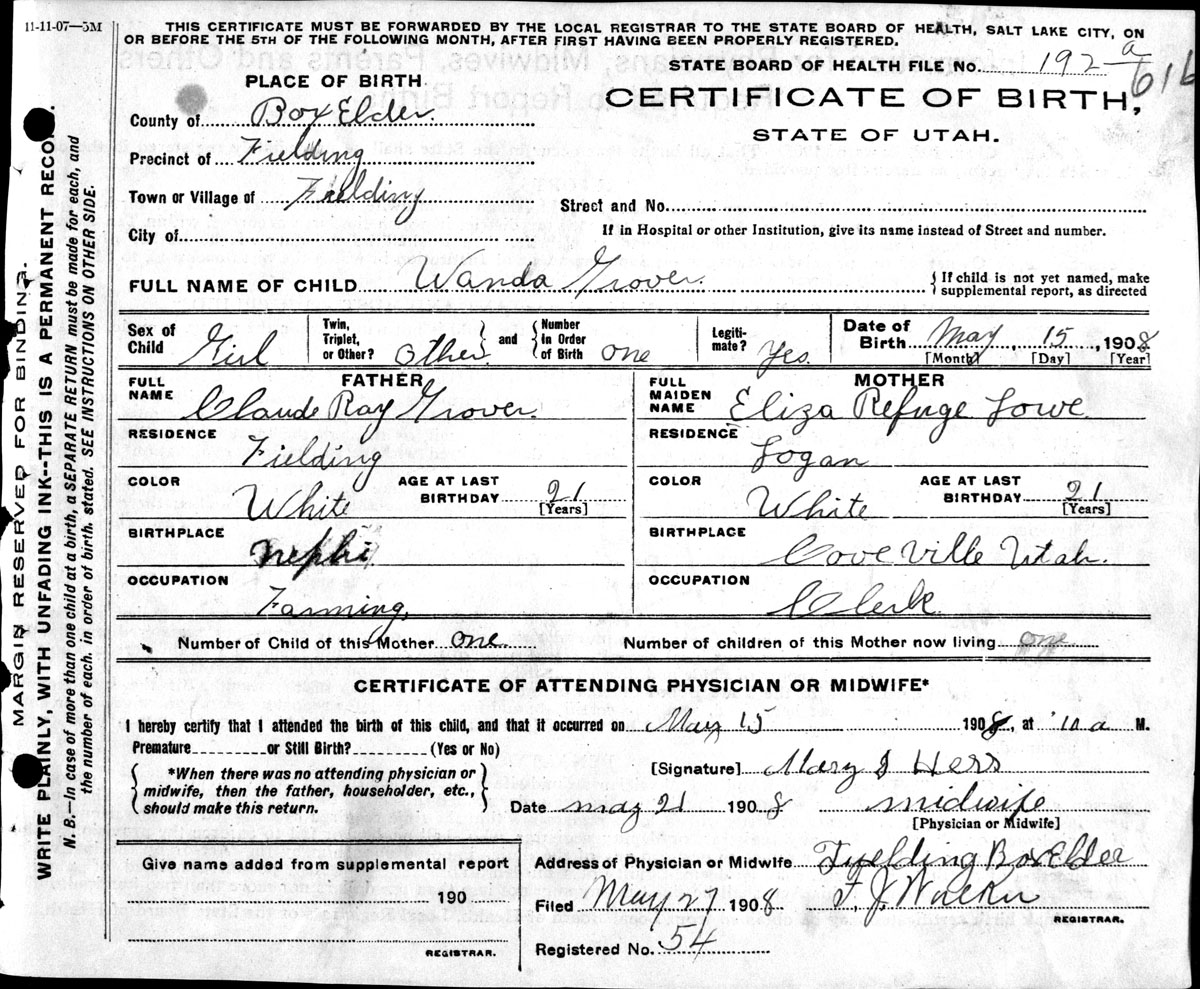 11-11-07—5M
THIS CERTIFICATE MUST BE FORWARDED BY THE LOCAL REGISTRAR TO THE STATE BOARD OF HEALTH, SALT LAKE CITY, ON
OR BEFORE THE 5TH OF THE FOLLOWING MONTH, AFTER FIRST HAVING BEEN PROPERLY REGISTERED.
STATE BOARD OF HEALTH FILE No. 192 a
616
PLACE OF BIRTH
CERTIFICATE OF BIRTH,
STATE OF UTAH.
County of Box Elder
Precinct of Fielding
Town or Village of Fielding
Street and No.
City of
If in Hospital or other Institution, give its name instead of Street and number.
FULL NAME OF CHILD Wanda Grover.
{If child is not yet named, make
supplemental report, as directed
Sex of Child Girl
Twin, Triplet, or Other? Other } and { Number In Order of Birth one
Legiti-mate? Yes.
Date of Birth May, 15, 1908
[Month] [Day] [Year]
FATHER
FULL NAME Claude Ray Grover.
RESIDENCE Fielding
COLOR White
AGE AT LAST BIRTHDAY 21 [Years]
BIRTHPLACE Nephi
OCCUPATION Farming.
MOTHER
FULL MAIDEN NAME Eliza Refuge Lowe
RESIDENCE Logan
COLOR White
AGE AT LAST BIRTHDAY 21 [Years]
BIRTHPLACE Coveville Utah.
OCCUPATION Clerk
Number of Child of this Mother one
Number of children of this Mother now living one
CERTIFICATE OF ATTENDING PHYSICIAN OR MIDWIFE*
I hereby certify that I attended the birth of this child, and that it occurred on May 15 1908, at 10 a M.
Premature or Still Birth? (Yes or No)
{ *When there was no attending physician or
midwife, then the father, householder, etc.,
should make this return. }
[Signature] Mary Hess
Date May 21 1908 midwife
[Physician or Midwife]
Give name added from supplemental report
190
REGISTRAR.
Address of Physician or Midwife Fyelding Box Elder
Filed May 27 1908 F. J.
REGISTRAR.
Registered No. 54
MARGIN RESERVED FOR BINDING.
WRITE PLAINLY, WITH UNFADING INK--THIS IS A PERMANENT RECO
N. B.—In case of more than one child at a birth, a SEPARATE RETURN must be made for each, and
the number of each, in order of birth, stated. SEE INSTRUCTIONS ON OTHER SIDE.